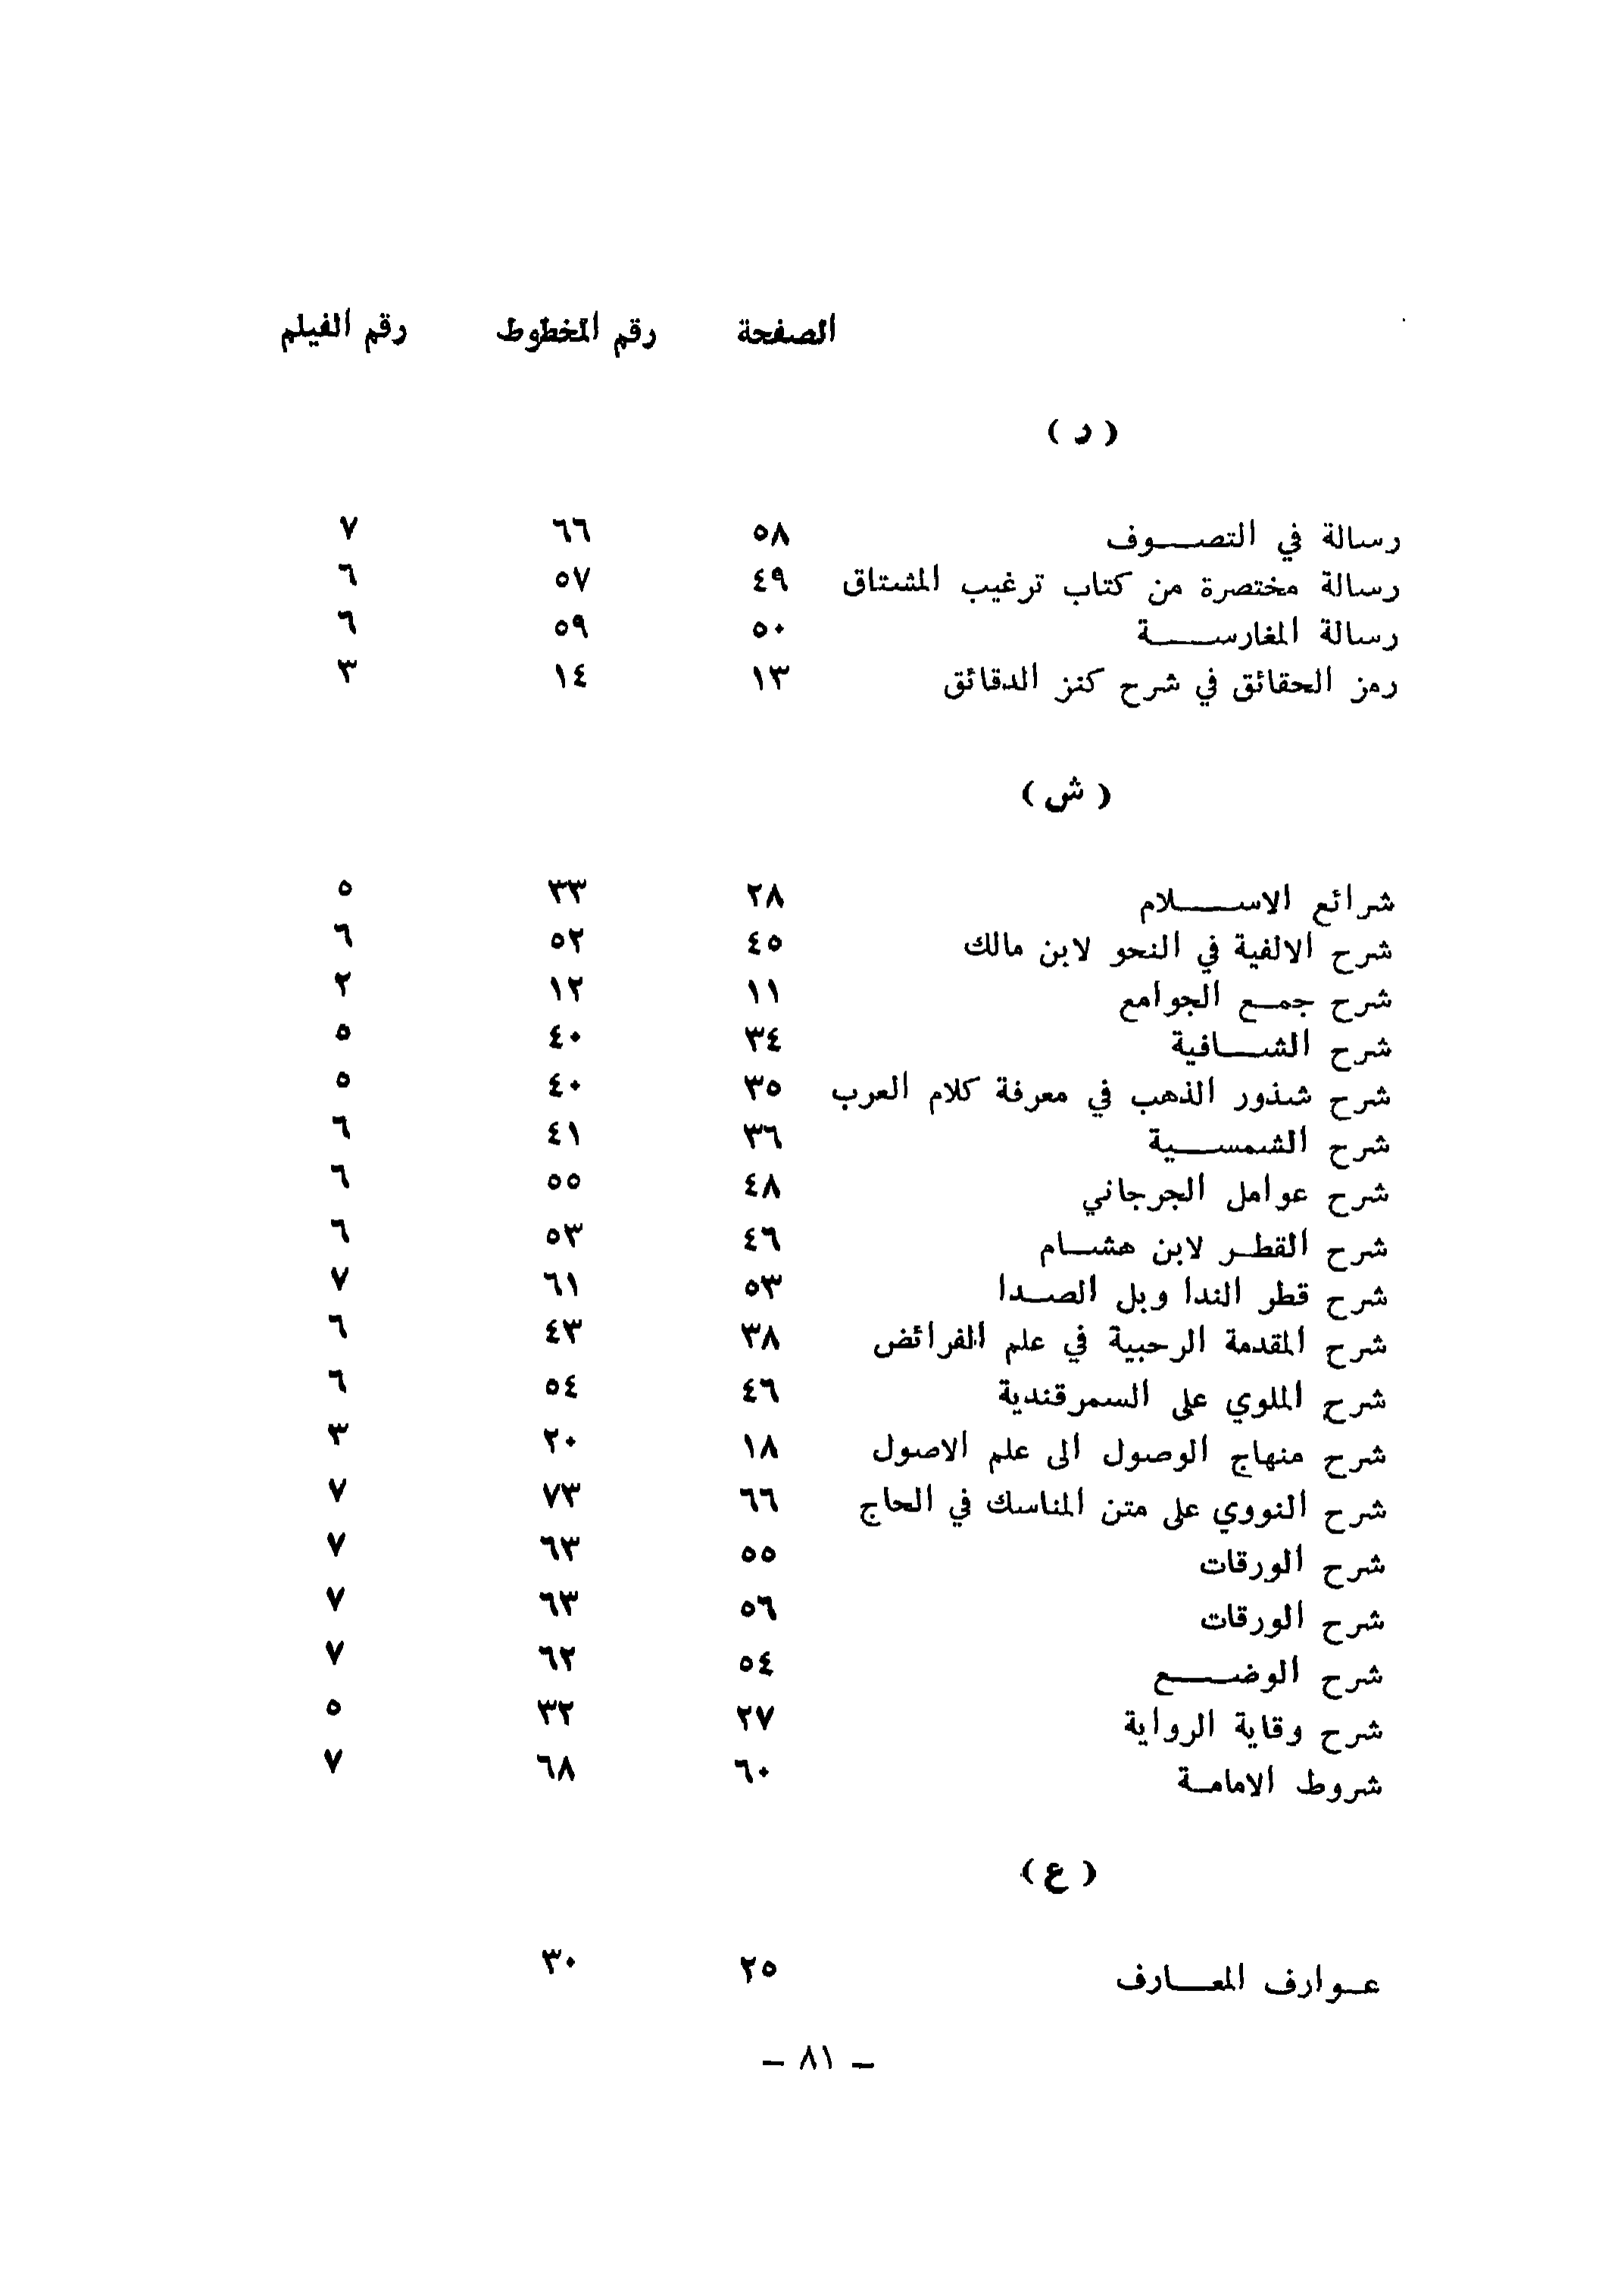 الصفحة رقم المخطوط رقم الفيلم
( ر )
رسالة في التصوف ٥٨ ٦٦ ٧
رسالة مختصرة من كتاب ترغيب المشتاق ٤٩ ٥٧ ٦
رسالة المغارسة ٥٠ ٥٩ ٦
رمز الحقائق في شرح كنز الدقائق ١٣ ١٤ ٣
( ش )
شرائع الاسلام ٢٨ ٣٣ ٥
شرح الالفية في النحو لابن مالك ٤٥ ٥٢ ٦
شرح جمع الجوامع ١١ ١٢ ٢
شرح الشافية ٣٤ ٤٠ ٥
شرح شذور الذهب في معرفة كلام العرب ٣٥ ٤٠ ٥
شرح الشمسية ٣٦ ٤١ ٦
شرح عوامل الجرجاني ٤٨ ٥٥ ٦
شرح القطر لابن هشام ٤٦ ٥٣ ٦
شرح قطر الندا وبل الصدا ٥٣ ٦١ ٧
شرح المقدمة الرحبية في علم الفرائض ٣٨ ٤٣ ٦
شرح الملوي على السمرقندية ٤٦ ٥٤ ٦
شرح منهاج الوصول الى علم الاصول ١٨ ٢٠ ٣
شرح النووي على متن المناسك في الحاج ٦٦ ٧٣ ٧
شرح الورقات ٥٥ ٦٣ ٧
شرح الورقات ٥٦ ٦٣ ٧
شرح الوضع ٥٤ ٦٢ ٧
شرح وقاية الرواية ٢٧ ٣٢ ٥
شروط الامامة ٦٠ ٦٨ ٧
( ع )
عوارف المعارف ٢٥ ٣٠
– ٨١ –